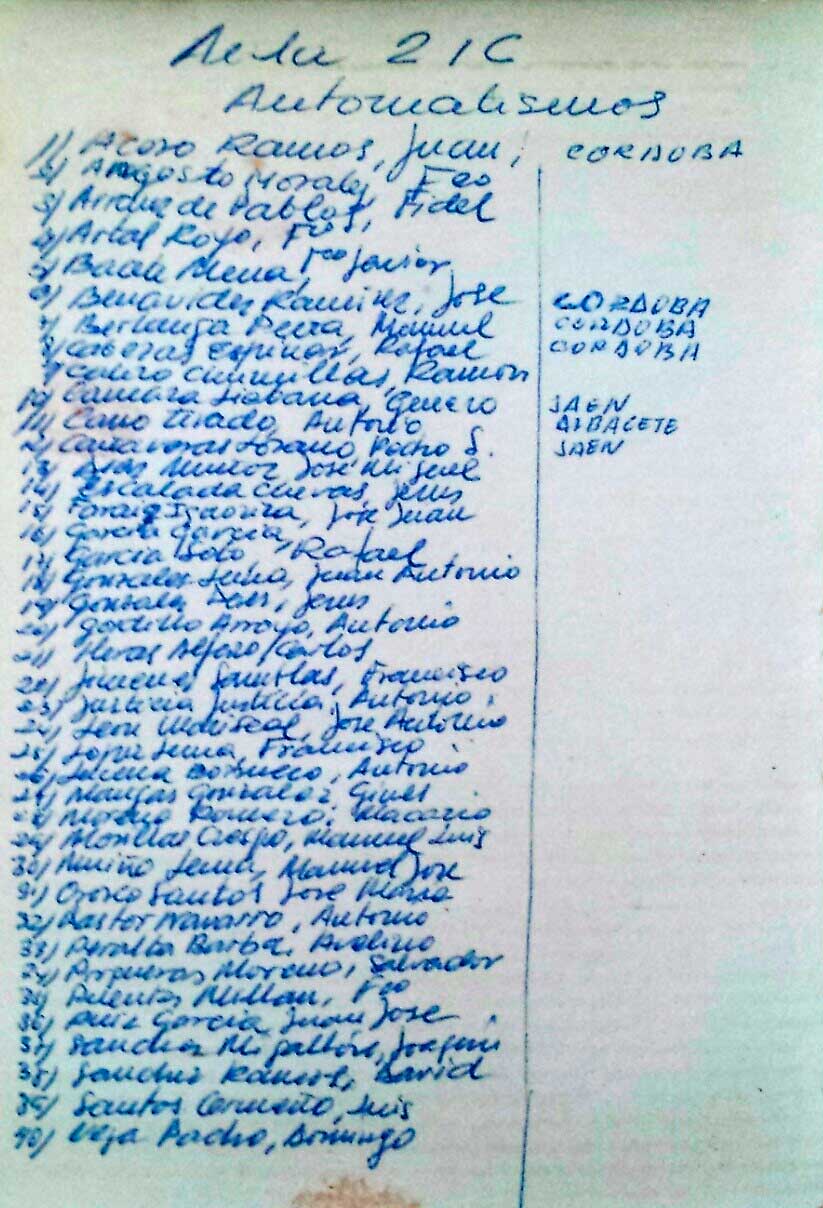 Aula 21C
Automatismos
1) Acoro Ramos, Juan, CORDOBA
2) Angosto Morales, Fco
3) Arranz de Pablos, Fidel
4) Artal Royo, 
5) Mena, Fco Javier
6) Benavides Ramirez, Jose CORDOBA
7) Berlanga Parra, Manuel CORDOBA
8) Caberas Espinar, Rafael CORDOBA
9) Calero Chinchillas, Ramon
10) Camara Liebana, JAEN
11) Cano Tirado, Antonio ALBACETE
12) Cañaveras Lozano, Pedro S. JAEN
13) Muñoz, José Miguel
14) Escalada Cuevas, Jesus
15) Jose Juan
16) Garcia Garcia,
17) Garcia Soto, Rafael
18) Gonzalez Luna, Juan Antonio
19) Gonzalez Jesus
20) Gordillo Arroyo, Antonio
21) Heras Alfaro, Carlos
22) Jimenez Francisco
23) Justicia Justicia, Antonio,
24) Leon Mariscal, Jose Antonio
25) Lopez Luna, Francisco
26) Lucena Antonio
27) Mangas Gonzalez, Gines
28) Moreno Romero, Macario
29) Morillas Crespo, Manuel Luis
30) Muriño Manuel Jose
31) Orozco Santos Jose Maria
32) Pastor Navarro, Antonio
33) Peralta Barba, Avelino
34) Moreno, Salvador
35) Puentes Millan, Fco
36) Ruiz Garcia, Juan Jose
37) Sanchez Migallon, Joaquin
38) Sanchez Ramos, David
39) Santos Cermeño, Luis
40) Vega Pacho, Domingo